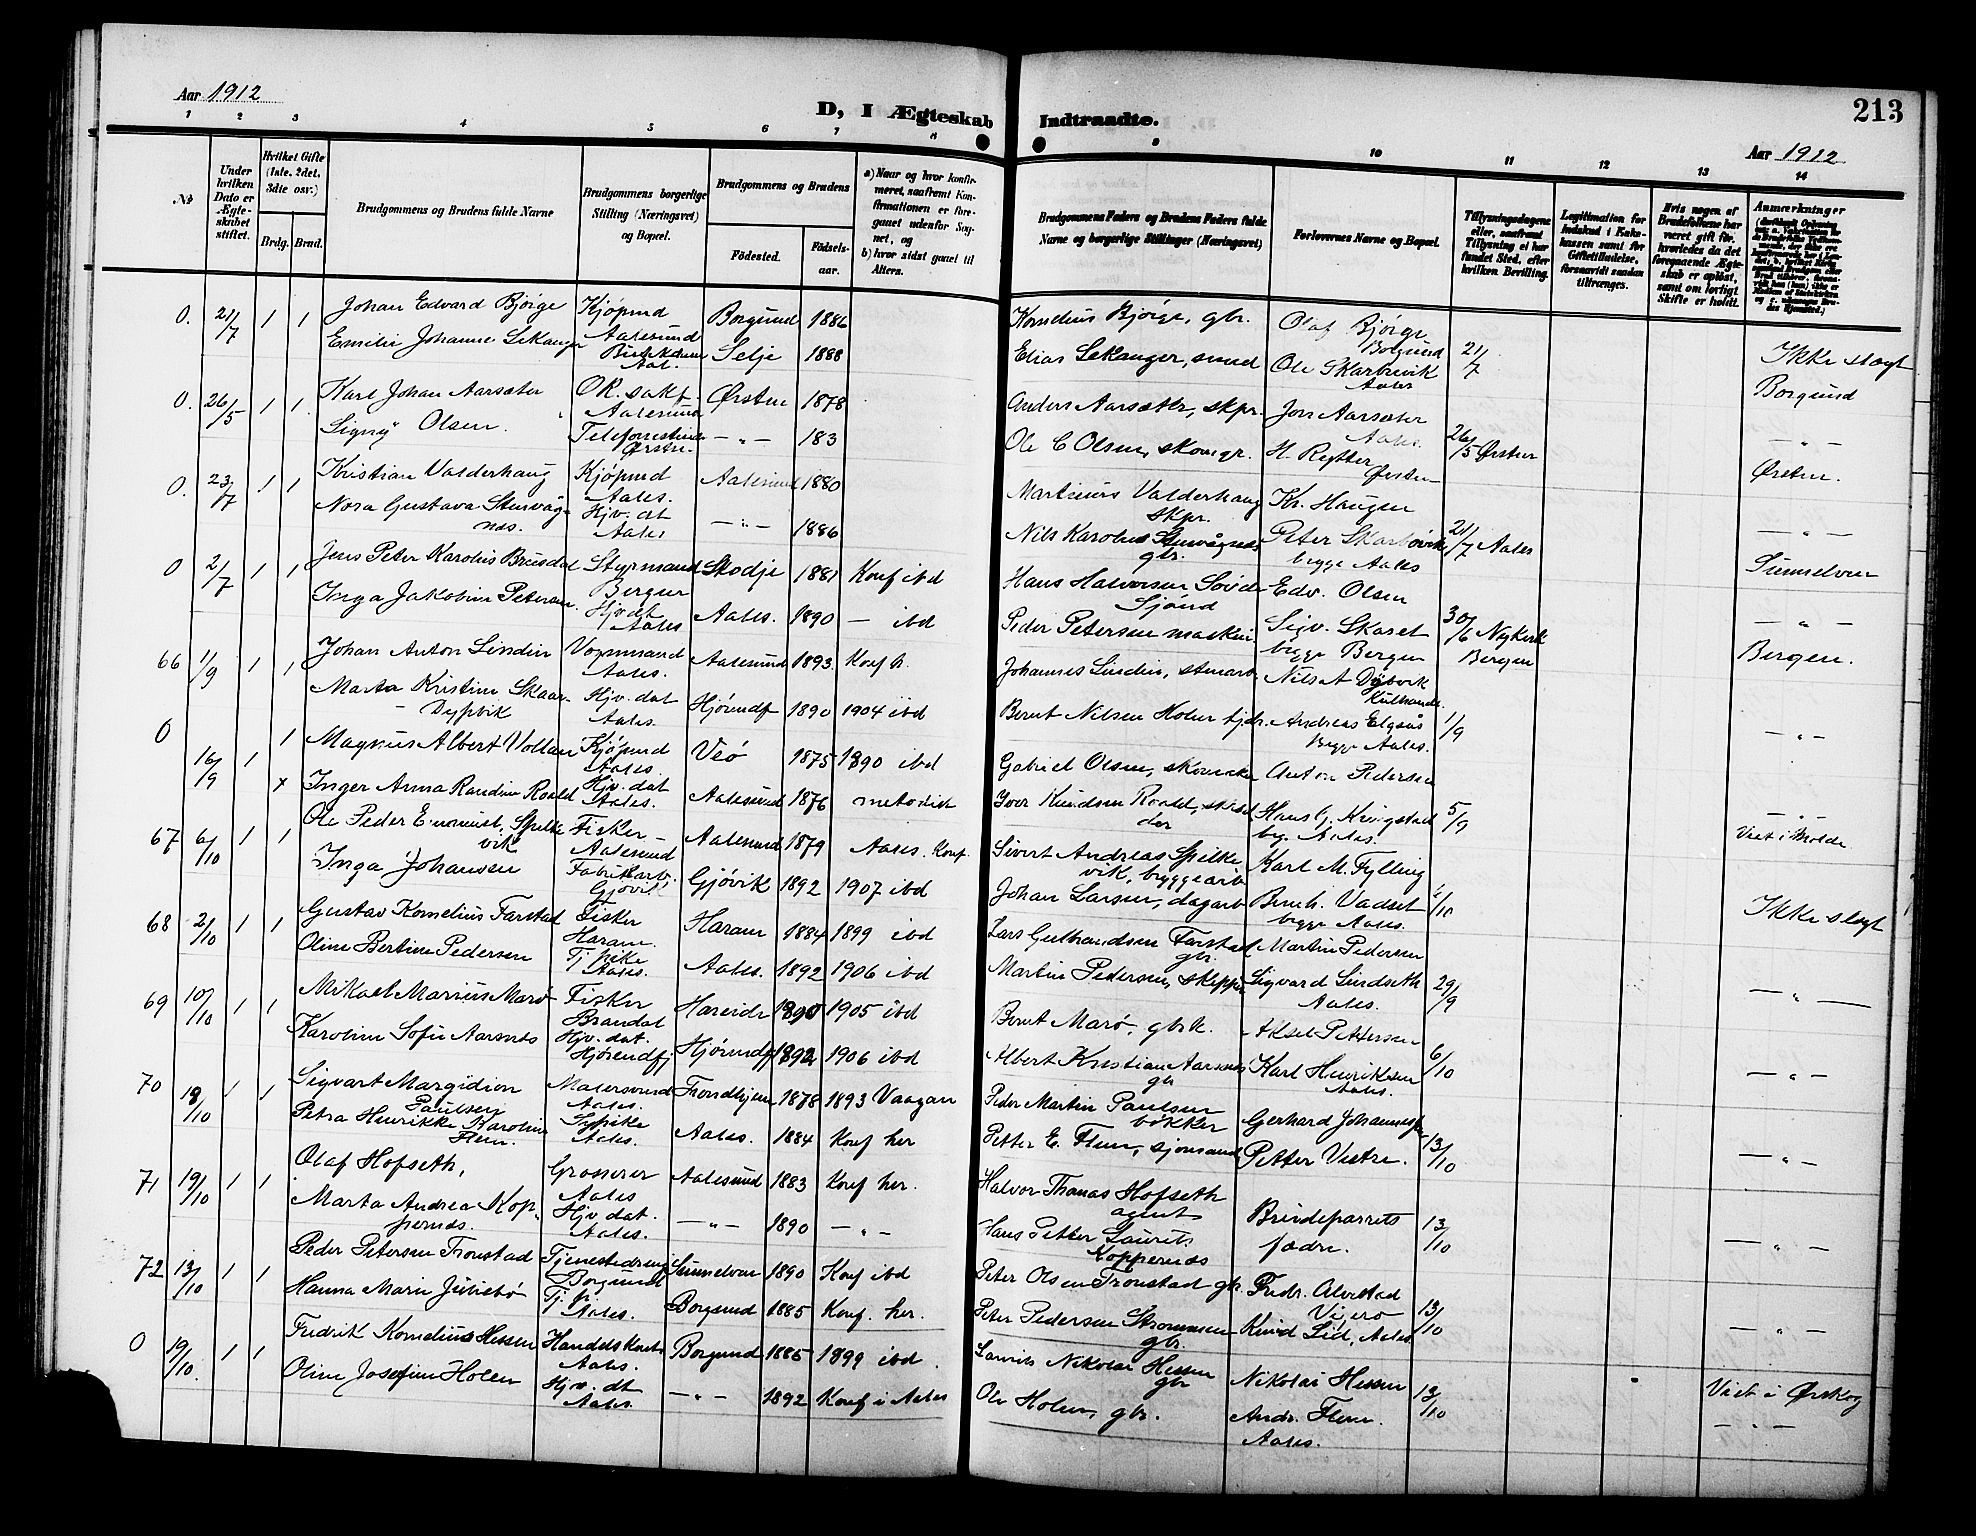 Aar 1912
D, I Ægteskab Indtraadte.
213
Aar 1912
1 2 3 4 5 6 7 8 9 10 11 12 13 14
№
Under hvilken Dato er Ægteskabet stiftet.
Hvilket Gifte (1ste, 2det, 3dte osv.)
Brdg. Brud.
Brudgommens og Brudens fulde Navne
Brudgommens borgerlige Stilling (Næringsvei) og Bopæl.
Brudgommens og Brudens
Fødested. Fødselsaar.
a) Naar og hvor konfirmeret, saafremt Konfirmationen er foregaaet udenfor Sognet, og
b) hvor sidst gaaet til Alters.
Brudgommens Faders og Brudens Faders fulde Navne og borgerlige Stillinger (Næringsvei)
Forlovernes Navne og Bopæl.
Tillysningsdagene eller, saafremt Tillysning ei har fundet Sted, efter hvilken Bevilling.
Legitimation for Indskud i Enkekassen samt for Giftetilladelse, forsaavidt saadan tiltrænges.
Hvis nogen af Brudefolkene har været gift før, hvorledes da det foregaaende Ægteskab er opløst, samt om lovligt Skifte er holdt.
Anmærkninger
0. 21/7 1 1 Johan Edvard Bjørge Kjøpmd Aalesund Borgund 1886 Kornelius Bjørge, gbr. Olaf Bjørge Borgund 21/7 Ikke slegt
Emilie Johanne Sekanger Aal. Selje 1888 Elias Sekanger, smed Ole Skarbrevik Aales Borgund
0. 26/5 1 1 Karl Johan Aarsæter Aalesund Ørsten 1878 Anders Aarsæter, skpr. Jon Aarsæter Aales. 26/5 Ørsten — " —
Signy Olsen. Ørsten. — " — 183 Ole C Olsen, skomgr. Ørsten Ørsten.
0. 23/7 1 1 Kristian Valderhaug Kjøpmd Aales. Aalesund 1880 Martinus Valderhaug skpr. Kr. Haugen 21/7 Aales — " —
Nora Gustava Stenvågnes. Hjv. dt Aales — " — 1886 Nils Karolius Stenvågnes gbr. Peter Skarbøvik begge Aales
0 2/7 1 1 Jens Peter Karolius Brusdal Styrmand Bergen Skodje 1881 Konf ibd Hans Halvorsen Edv. Olsen 30/6 Nykirk Bergen — " —
Inga Jakobine Petersen. Hjv dt Aales Aales. 1890 — ibd Peder Petersen maskin Sigv. Skaset begge Bergen Bergen.
66 1/9 1 1 Johan Anton Lindin Vognmand Aales. Aalesund 1893 Konf h. Johannes Lindin, stenarb Nils A Dybvik 1/9 — " —
Marta Kristine Skaar- Dypvik Hjv. dat Aales. Hjørundf 1890 1904 ibd Bernt Nilsen Holen Andreas Elgsås Begge Aales.
0 16/9 1 1 Magnus Albert Vollan Kjøpmd Aales. Veø 1875 1890 ibd Gabriel Olsen, Anton Pedersen 5/9 — " —
x Inger Anna Randine Roald Hjv. dat Aales. Aalesund 1876 metodist Iver Knudsen Roald, Hans G. Ringstad bg. Aales. Viet i Molde
67 6/10 1 1 Ole Peder Spilkevik Fisker - Aalesund Aalesund 1879 Aales. Konf. Sivert Andreas Spilkevik, byggearb Karl M. Fylling 6/10 Ikke slegt
Inga Johansen Fabrikkarb. Gjøvik Gjøvik 1892 1907 ibd Johan Larsen, dagarb Bernh. Vadset begge Aales.
68 2/10 1 1 Gustav Kornelius Farstad Fisker Haram. Haram 1884 1899 ibd Lars Gulbrandsen Farstad gbr. Martin Pedersen 29/9 — " —
Oline Bertine Pedersen Tj pike Aales. Aales. 1892 1906 ibd Martin Pedersen, skipper Sigvard Lindseth Aales.
69 10/10 1 1 Mikael Marius Marø Fisker Brandal Hareide 1890 1905 ibd Bernt Marø, gbrk. Aksel Pettersen 6/10 — " —
Karoline Sofie Aarsnes Hjv. dat. Hjørendfj Hjørundfj 1892 1906 ibd Albert Kristian Aarsnes gbr Karl Henriksen Aales.
70 18/10 1 1 Sigvart Margidion Paulsen Malersvend Aales. Trondhjem 1878 1893 Vaagan Peder Martin Paulsen bøkker Gerhard Johannessen 13/10 — " —
Petra Henrikke Karoline Flem. Sypike Aales. Aales. 1884 Konf her Petter E. Flem, sjømand Petter Vestre.
71 19/10 1 1 Olaf Hofseth, Grosserer Aales Aalesund 1883 Konf her. Halvor Thomas Hofseth agent Brudeparrets fædre. 13/10 — " —
Marta Andrea Koppernæs. Hjv dat. Aales. — " — 1890 — " — Hans Petter Laurits Koppernæs
72 13/10 1 1 Peder Petersen Tronstad Tjenestedreng Borgund Sunnelven 1890 Konf ibd Peter Olsen Tronstad gbr Fredr. Alvestad Vigero 13/10 — " —
Hanna Marie Juliebø Tj. p. Aales. Borgund 1885 Konf. her. Peter Pedersen Strømmen gbr. Knud Lid, Aales
0 19/10 1 1 Fredrik Kornelius Hessen Handelskont Aales. Borgund 1885 1899 ibd. Laurits Nikolai Hessen gbr Nikolai Hessen 13/10 Viet i Ørskog
Oline Josefine Holen Hjv. dt Aales. — " — 1892 Konf i Aales Ole Holen, gbr. Andr. Flem. Aales. — " —